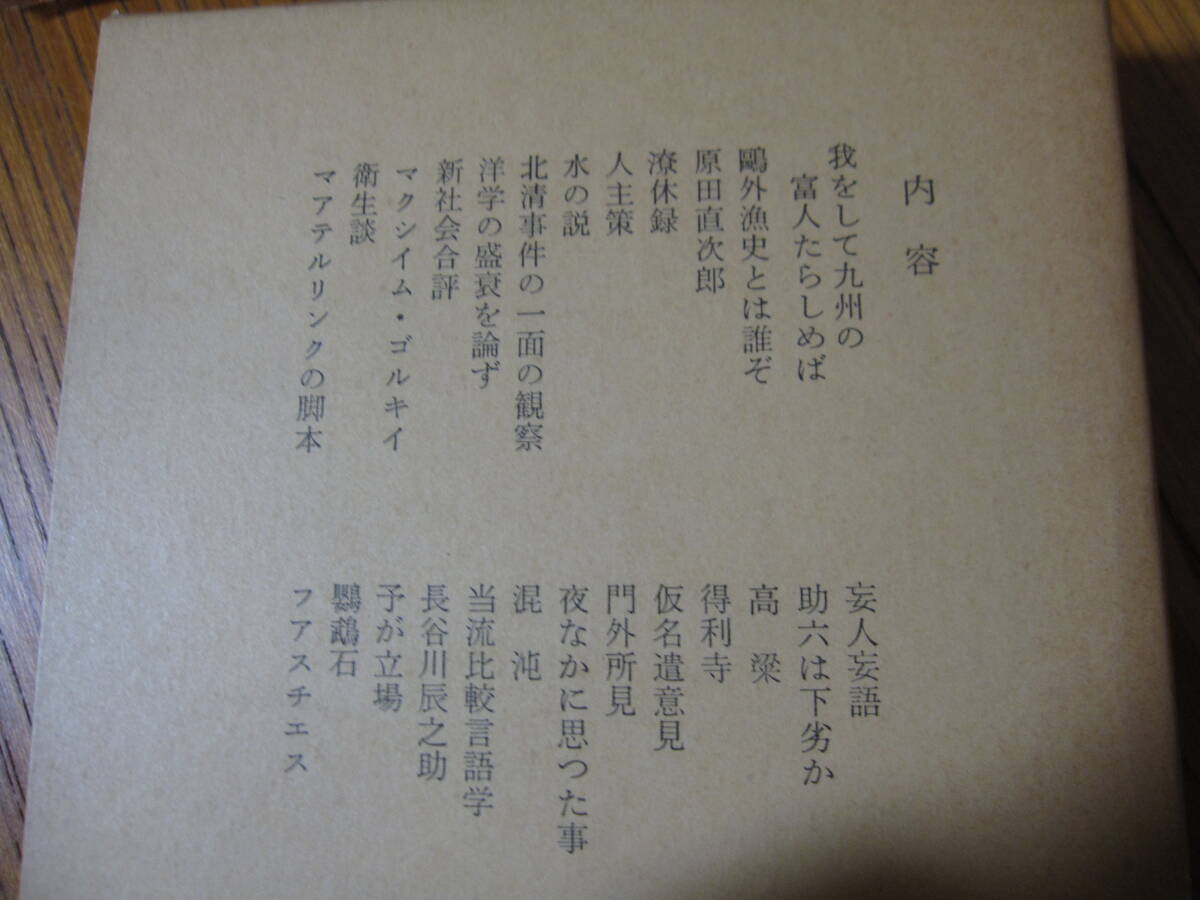 内容
我をして九州の
富人たらしめば
鷗外漁史とは誰ぞ
原田直次郎
潦休録
人主策
水の説
北清事件の一面の観察
洋学の盛衰を論ず
新社会合評
マクシイム・ゴルキイ
衛生談
マアテルリンクの脚本
妄人妄語
助六は下劣か
高梁
得利寺
仮名遣意見
門外所見
夜なかに思つた事
混沌
当流比較言語学
長谷川辰之助
予が立場
鸚鵡石
フアスチエス